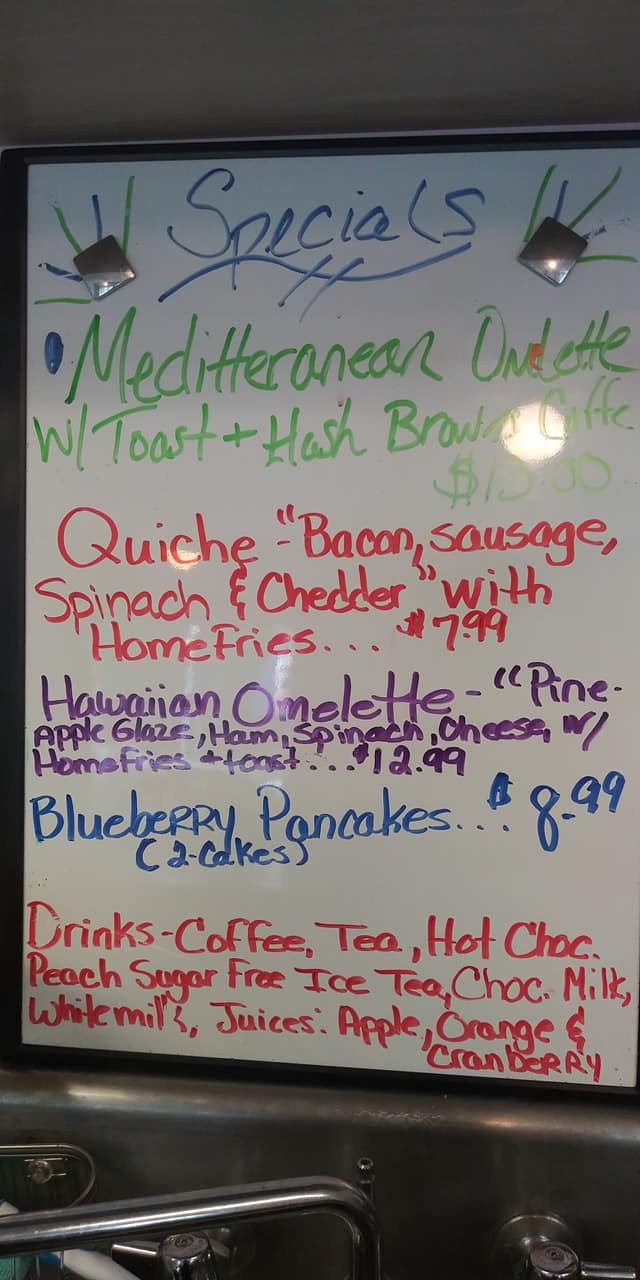 Specials
Meditteranean Omlette
W/ Toast + Hash Browns Coffe
$13.00
Quiche - "Bacon, sausage,
Spinach & Chedder" with
HomeFries... $7.99
Hawaiian Omelette - "Pine-
Apple Glaze, Ham, Spinach, Cheese, W/
HomeFries + toast... $12.99
Blueberry Pancakes... $8.99
(2-Cakes)
Drinks - Coffee, Tea, Hot Choc.
Peach Sugar Free Ice Tea, Choc. Milk,
White milk, Juices: Apple, Orange &
Cranberry